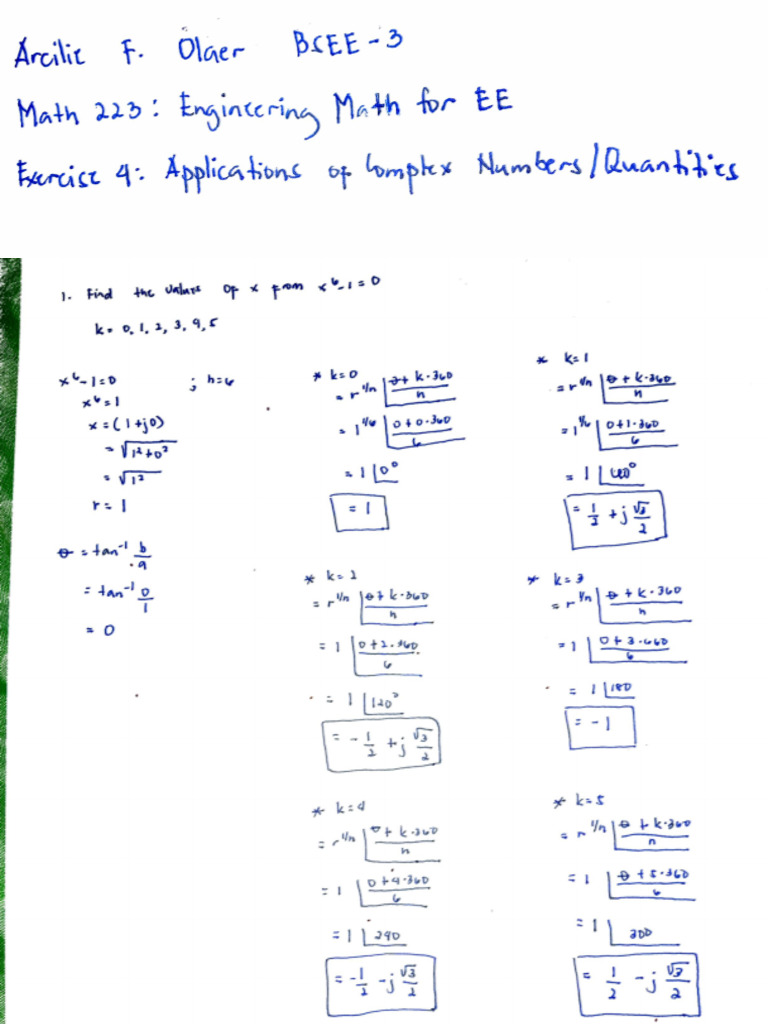 Arcilie F. Olaer BSEE-3
Math 223: Engineering Math for EE
Exercise 4: Applications of Complex Numbers/Quantities
1. Find the values of x from x⁶-1=0
k = 0, 1, 2, 3, 4, 5
x⁶-1=0 ; n=6
x⁶=1
x=(1+j0)
=√1²+0²
=√1²
r=1
θ = tan⁻¹ b/a
= tan⁻¹ 0/1
= 0
* k=0
= r^1/n |θ + k·360/n
= 1^1/6 |0+0·360/6
= 1 |0°
= 1
* k=1
= r^1/n |θ + k·360/n
= 1^1/6 |0+1·360/6
= 1 |60°
= 1/2 + j √3/2
* k=2
= r^1/n |θ + k·360/n
= 1 |0+2·360/6
= 1 |120°
= -1/2 + j √3/2
* k=3
= r^1/n |θ + k·360/n
= 1 |0+3·360/6
= 1 |180
= -1
* k=4
= r^1/n |θ + k·360/n
= 1 |0+4·360/6
= 1 |240
= -1/2 - j √3/2
* k=5
= r^1/n |θ + k·360/n
= 1 |θ+5·360/6
= 1 |300
= 1/2 - j √3/2